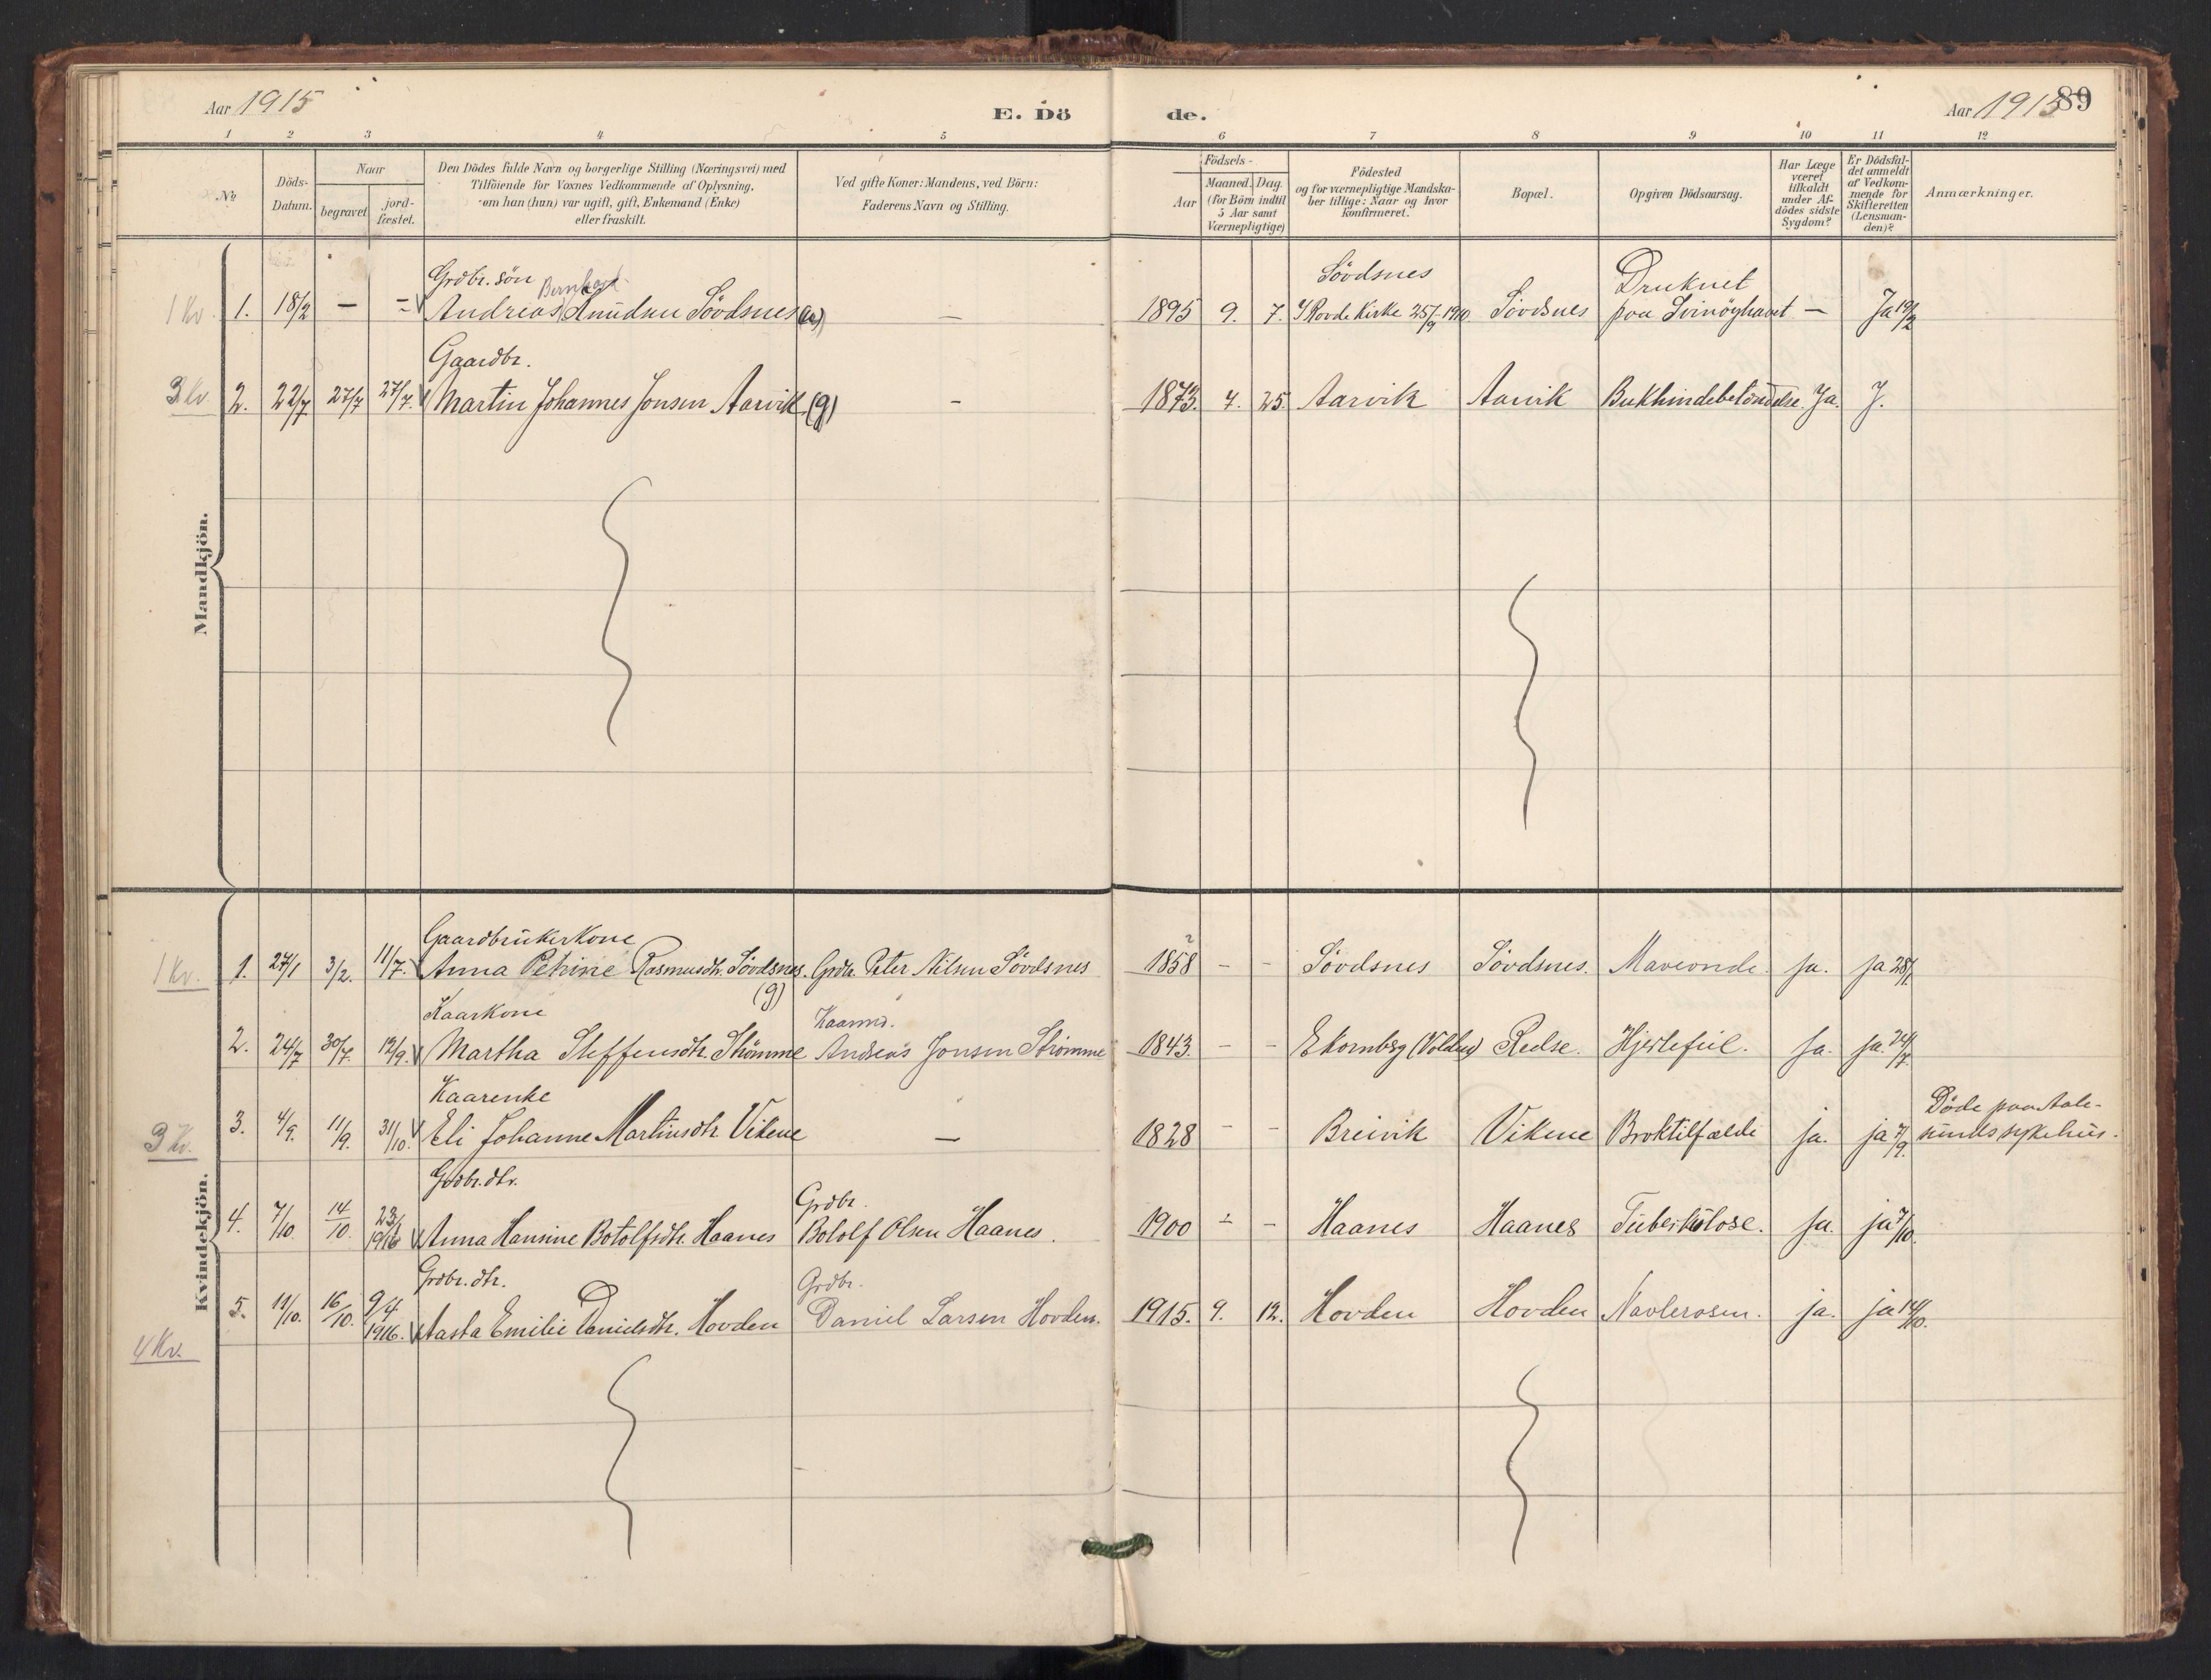 Aar 1915
E. Dö de.
Aar 1915 89
1 2 3 4 5 6 7 8 9 10 11 12
No.
Döds-Datum.
Naar
begravet
jord-fæstet.
Den Dödes fulde Navn og borgerlige Stilling (Næringsvei) med
Tilföiende for Voxnes Vedkommende af Oplysning,
om han (hun) var ugift, gift, Enkemand (Enke)
eller fraskilt.
Ved gifte Koner: Mandens, ved Börn:
Faderens Navn og Stilling.
Födsels-
Aar
Maaned. Dag.
(for Börn indtil
5 Aar samt
Værnepligtige)
Födested
og for værnepligtige Mandska-
ber tillige: Naar og hvor
konfirmeret.
Bopæl.
Opgiven Dödsaarsag.
Har Læge
været
tilkaldt
under Af-
dödes sidste
Sygdom?
Er Dödsfal-
det anmeldt
af Vedkom-
mende for
Skifteretten
(Lensman-
den)?
Anmærkninger.
Mandkjön.
Grdbr. sön Bernhard Sövdsnes Druknet
1 Kv. 1. 18/2 — — Andreas Knudsen Sövdsnes (u) — 1895 9. 7. I Rovde Kirke 25/9 1910 Sövdsnes paa Svinöyhavet — Ja 19/2
Gaardbr.
3 Kv. 2. 22/7 27/7 27/7. Martin Johannes Jonsen Aarvik (g) — 1873. 4. 25. Aarvik Aarvik Bukhindebetændelse. Ja. J.
Kvindekjön.
Gaardbrukerkone
1 Kv. 1. 27/1 3/2. 11/7. Anna Petrine Rasmusdtr. Sövdsnes. (g) Grdbr. Peter Nilsen Sövdsnes 1858 ? - - Sövdsnes Sövdsnes. Maveonde. ja. ja 28/1
Kaarkone Kaarmd.
2. 24/7 30/7. 12/9. Martha Steffensdtr. Strömme Andreas Jonsen Strömme 1843. - - Ekornberg (Volden) Reelse. Hjertefeil. ja. ja. 24/7.
Kaarenke
3 Kv. 3. 4/9. 11/9. 31/10. Eli Johanne Martinsdtr. Vikene — 1828 - - Breivik Vikene Broktilfælde ja. ja 7/9. Döde paa Aale-
sunds sykehus.
Grdbr. dtr. Grdbr.
4. 7/10. 14/10. 23/1 1916 Anna Hansine Botolfsdtr. Haanes Botolf Olsen Haanes. 1900 - - Haanes Haanes Tuberkulose. ja. ja 7/10.
Grdbr. dtr. Grdbr.
5. 11/10. 16/10. 9/4 1916. Aasta Emilie Danielsdtr. Hovden Daniel Larsen Hovden. 1915. 9. 12. Hovden Hovden Navlerosen. ja. ja 12/10.
4 Kv.